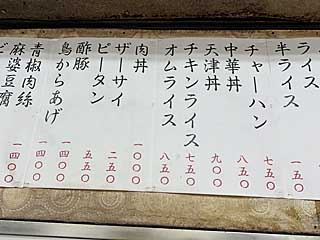 ライス
半ライス 一五〇
チャーハン 七五〇
中華丼 八〇〇
天津丼 九〇〇
チキンライス 七五〇
オムライス 八五〇
肉丼 一〇〇〇
ザーサイ 二五〇
ピータン 五五〇
酢豚 一四〇〇
鳥からあげ 一四〇〇
青椒肉絲 一四〇〇
麻婆豆腐